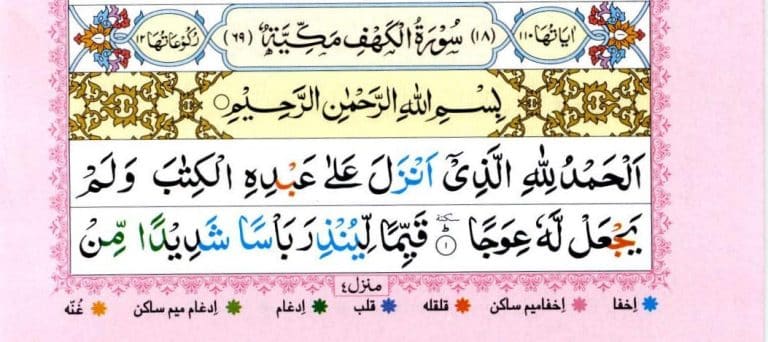 اٰیَاتُهَا ١١٠ (١٨) سُوْرَةُ الْكَهْفِ مَكِّیَّةٌ (٦٩) رُكُوْعَاتُهَا ١٢
بِسْمِ اللهِ الرَّحْمٰنِ الرَّحِیْمِ
اَلْحَمْدُ لِلّٰهِ الَّذِیْۤ اَنْزَلَ عَلٰی عَبْدِهِ الْكِتٰبَ وَلَمْ
یَجْعَلْ لَّهٗ عِوَجًا ؕ سكتة ١ قَیِّمًا لِّیُنْذِرَ بَاْسًا شَدِیْدًا مِّنْ
منزل ٤
اِخفا اِخفامیم ساكن قلقله قلب اِدغام اِدغام میم ساكن غُنّه